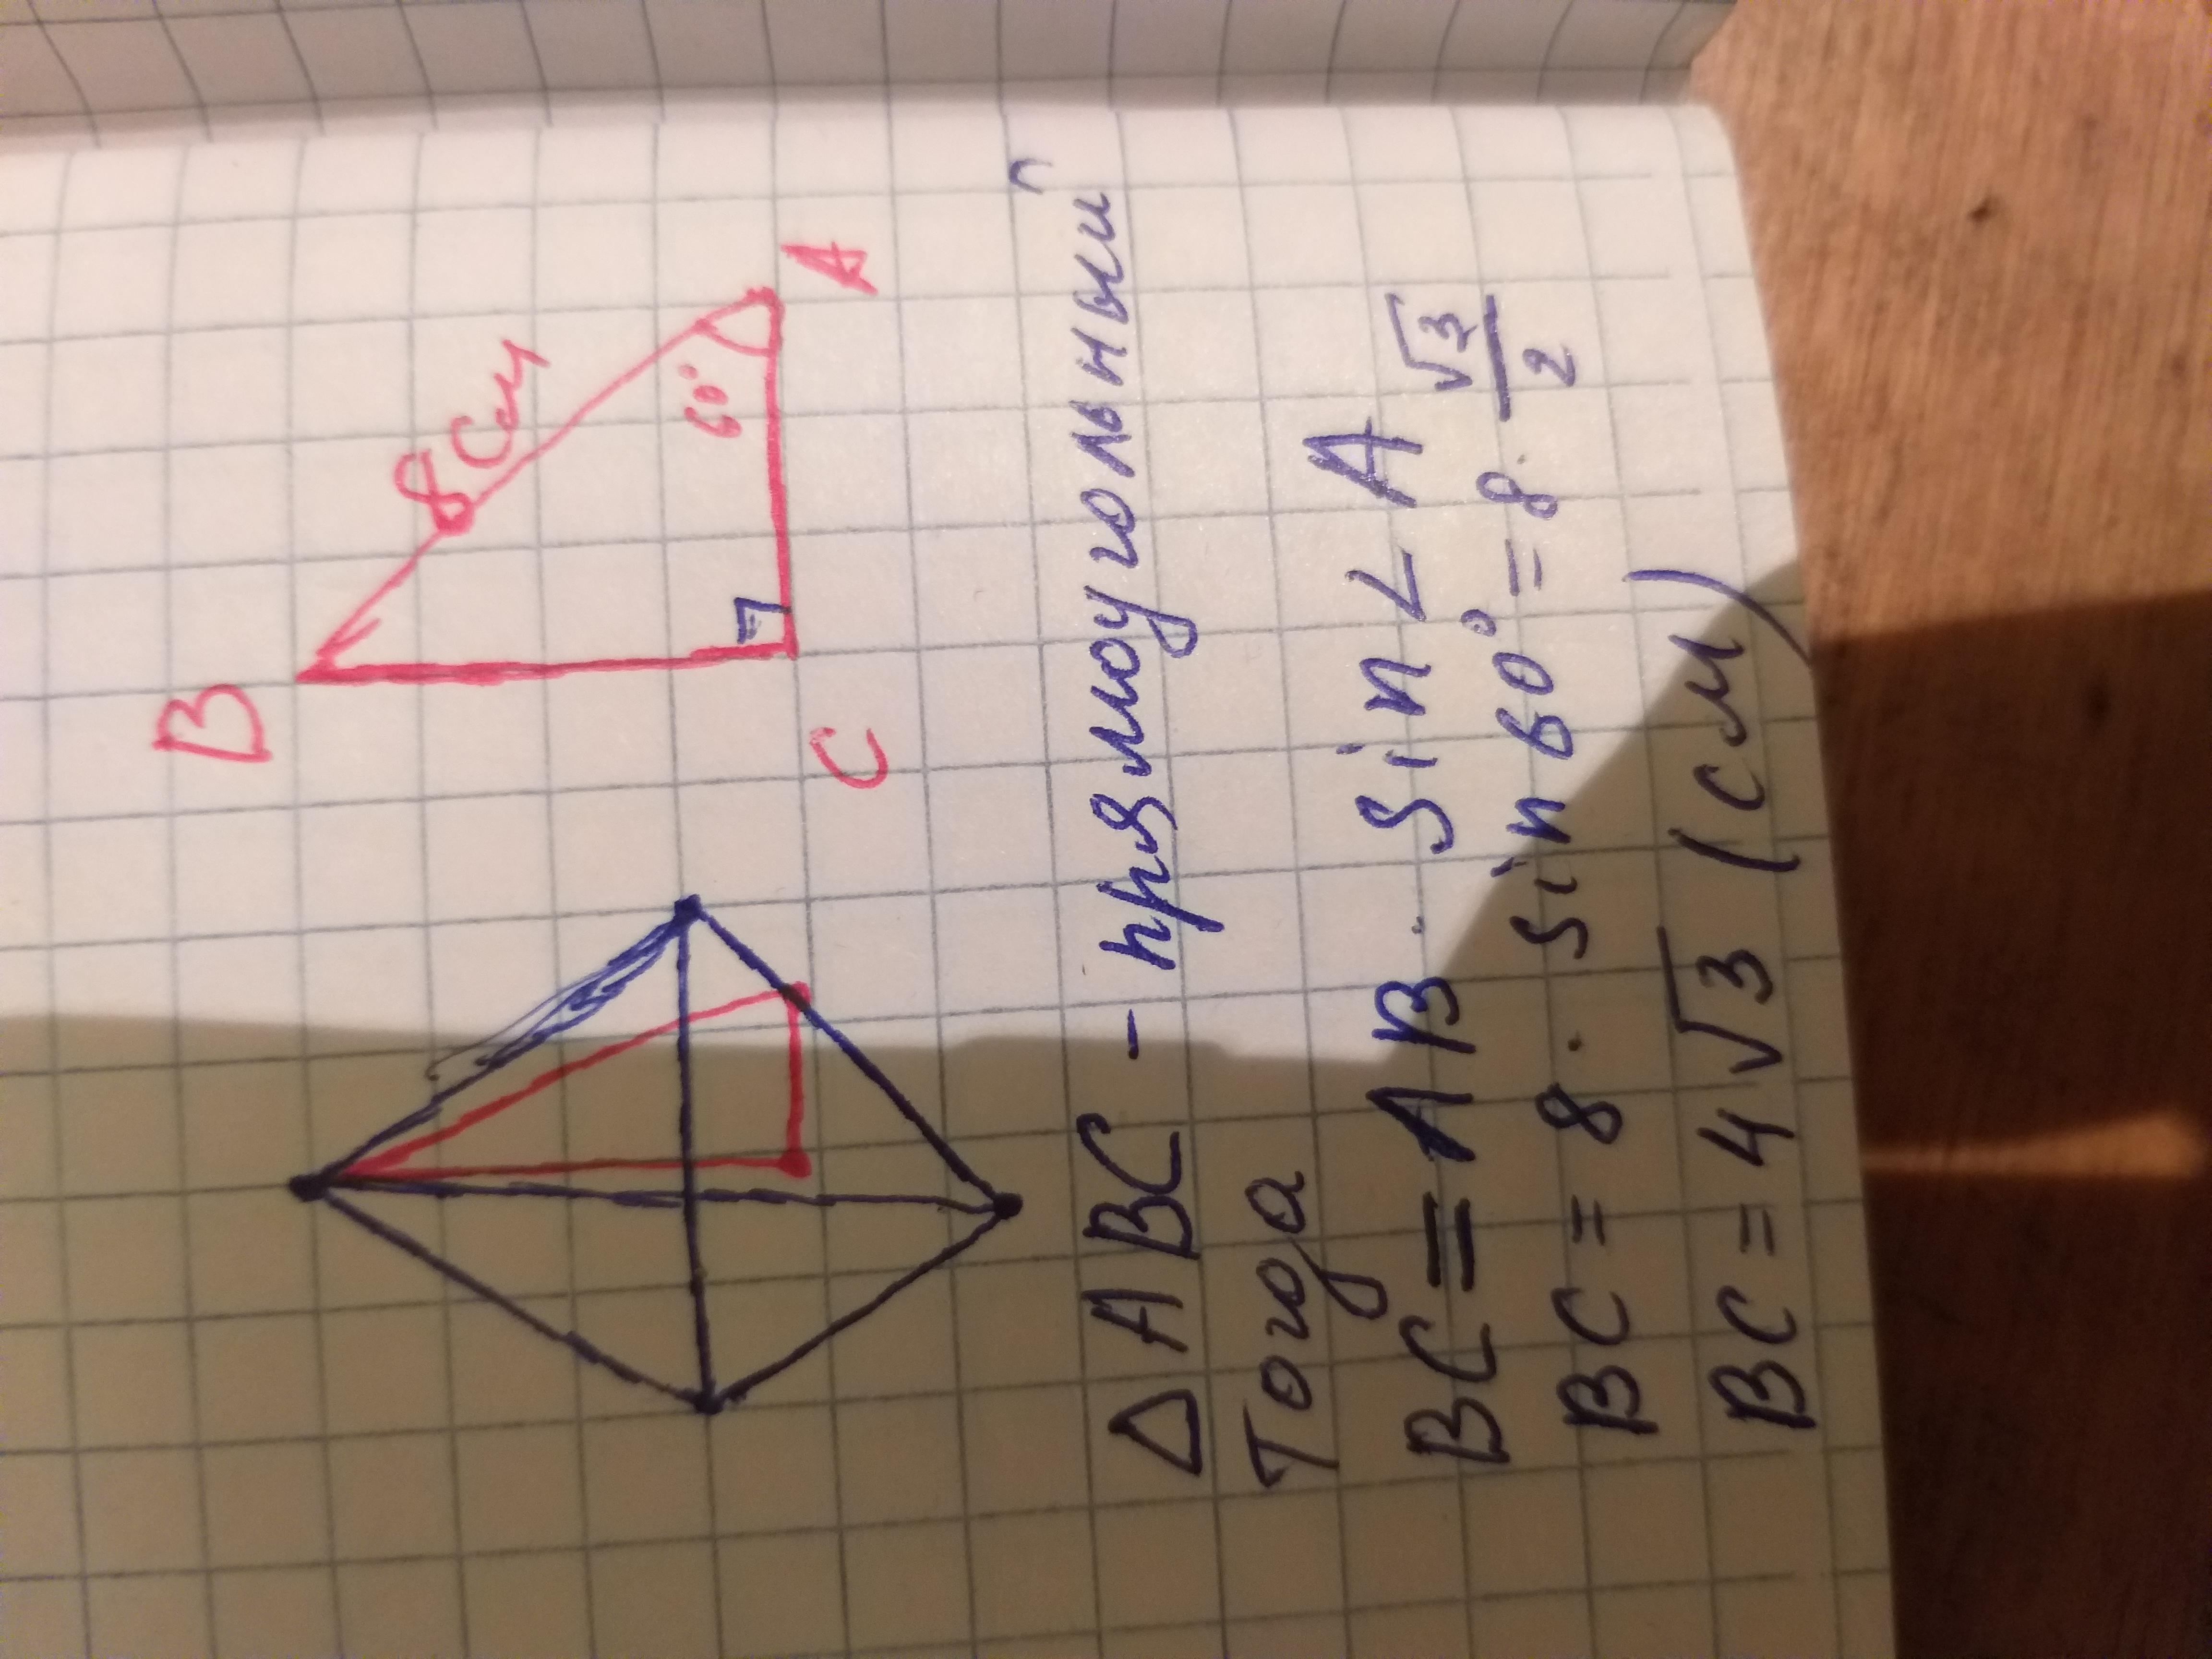 B
8 см
60°
C
A
△ ABC - прямоугольный
Тогда
BC = AB · sin ∠ A
BC = 8 · sin 60° = 8 · √3/2
BC = 4√3 (см)